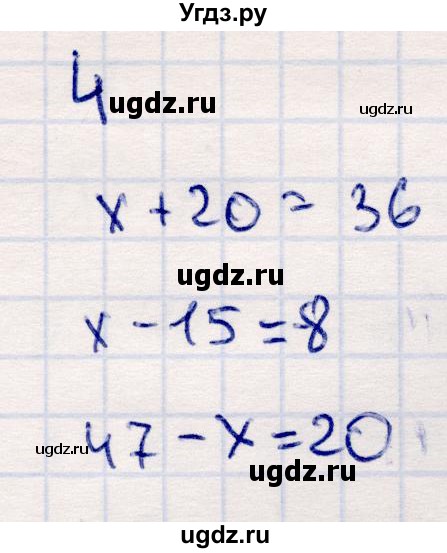 Угдз.ру
4
ugdz.ru
ugdz.ru
x + 20 = 36
ugdz.ru
x - 15 = 8
ugdz.ru
47 - x = 20
ugdz.ru
ugdz.ru